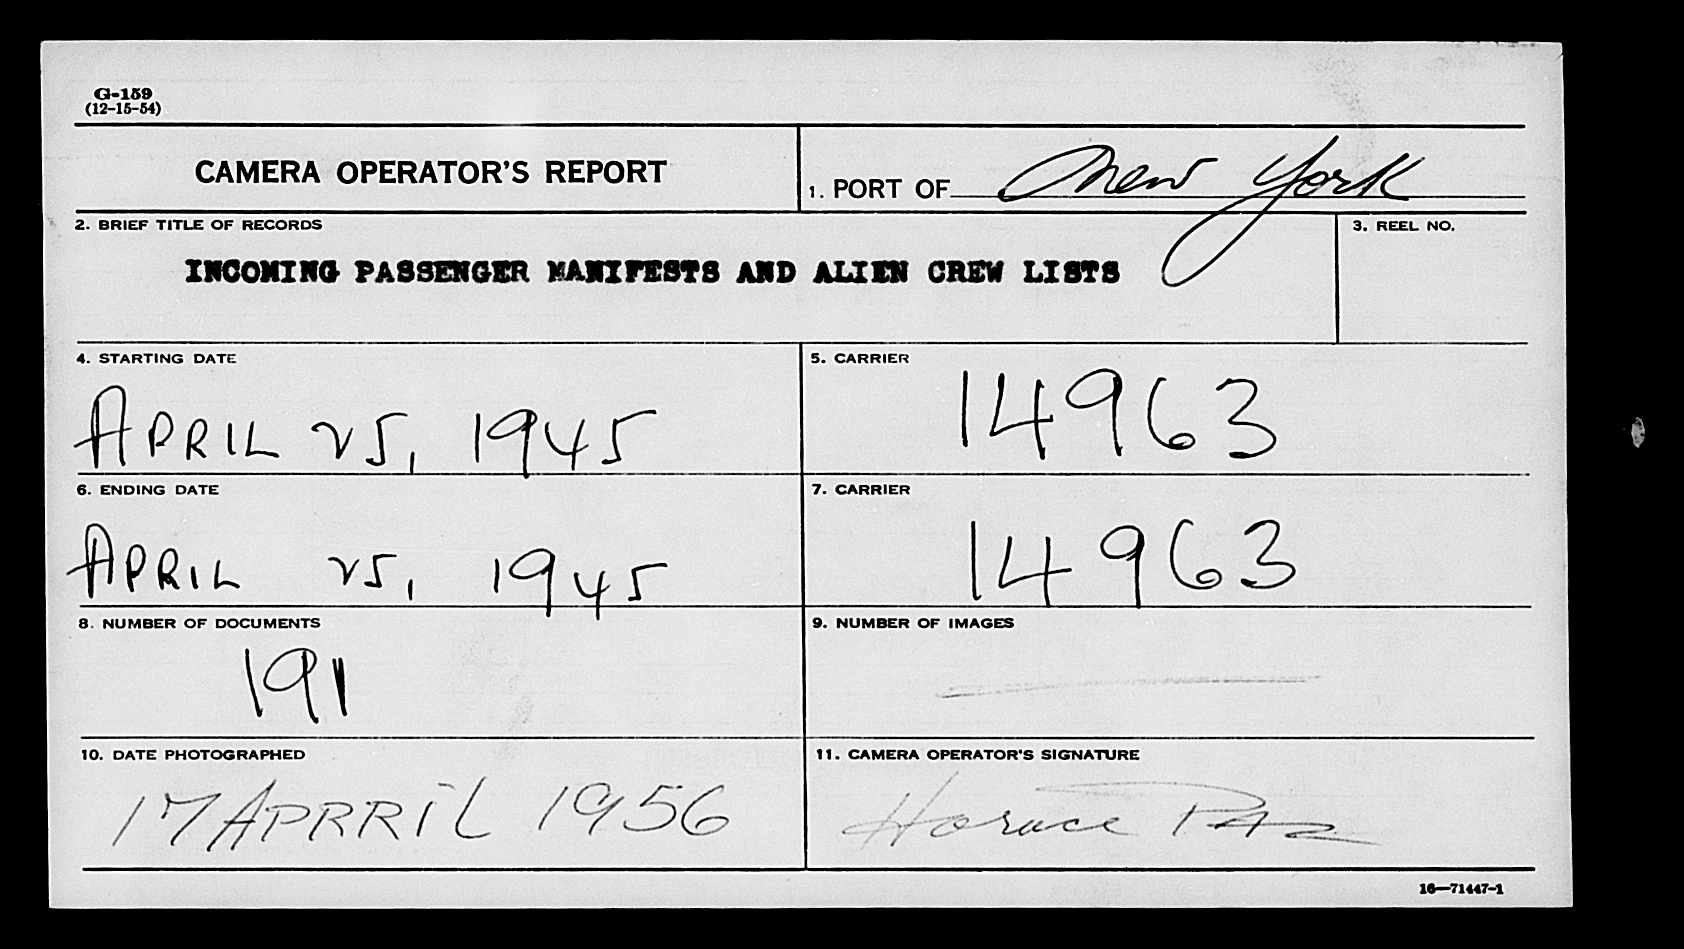 G-159
(12-15-54)
CAMERA OPERATOR'S REPORT
1. PORT OF New York
2. BRIEF TITLE OF RECORDS
3. REEL NO.
INCOMING PASSENGER MANIFESTS AND ALIEN CREW LISTS
4. STARTING DATE
5. CARRIER
APRIL 25, 1945
14963
6. ENDING DATE
7. CARRIER
APRIL 25, 1945
14963
8. NUMBER OF DOCUMENTS
9. NUMBER OF IMAGES
191
10. DATE PHOTOGRAPHED
11. CAMERA OPERATOR'S SIGNATURE
17 APRRIL 1956
Horace Paz
16—71447-1